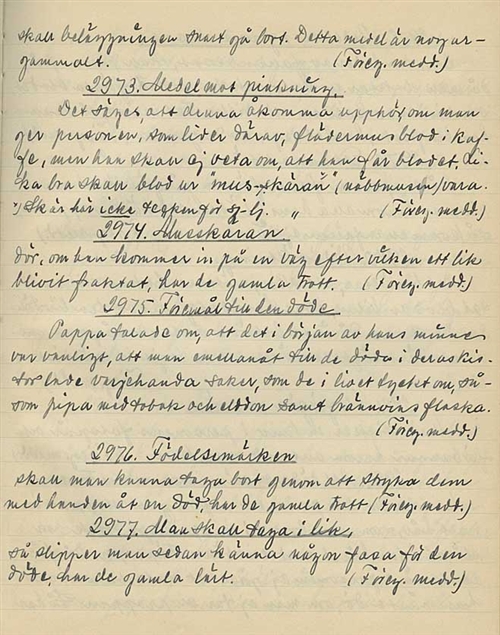 skall beläggningen snart gå bort. Detta medel är nog ur-
gammalt. (Föreg. medd.)
2973. Medel mot pinkning.
Det säges, att denna åkomma upphör, om man
ger personen, som lider därav, flädermusblod i kaf-
fe, men han skall ej veta om, att han får blodet. Li-
ka bra skall blod ur "mus-skäran" (näbbmusen) vara.
*) Sk är här icke tecken för sj-lj. " (Föreg. medd.)
2974. Musskäran
dör, om han kommer in på en väg efter vilken ett lik
blivit fraktat, har de gamla trott. (Föreg. medd.)
2975. Föremål till den döde
Pappa talade om, att det i början av hans minne
var vanligt, att man emellanåt till de döda i deras kis-
tor lade varjehanda saker, som de i livet tyckt om, så-
som pipa med tobak och elddon samt brännvinsflaska.
(Föreg. medd.)
2976. Födelsemärken
skall man kunna taga bort genom att stryka dem
med handen åt en död, har de gamla trott (Föreg. medd.)
2977. Man skall taga i lik,
så slipper man sedan känna någon fasa för den
döde, har de gamla lärt. (Föreg. medd.)